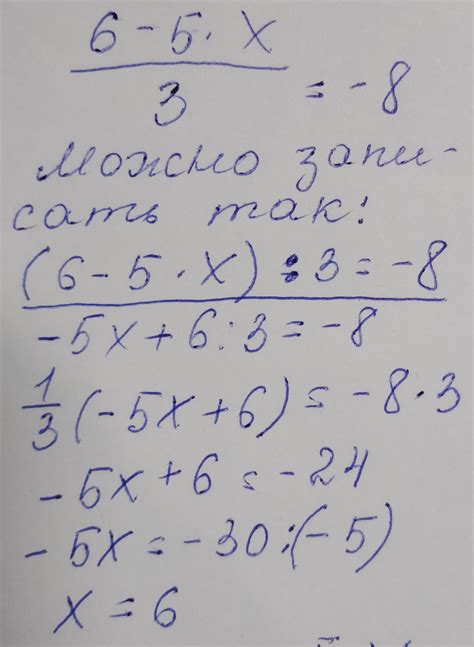 6 - 5 · x
3 = -8
Можно запи-
сать так:
(6 - 5 · x) : 3 = -8
-5x + 6 : 3 = -8
1/3 (-5x + 6) = -8 · 3
-5x + 6 = -24
-5x = -30 : (-5)
x = 6